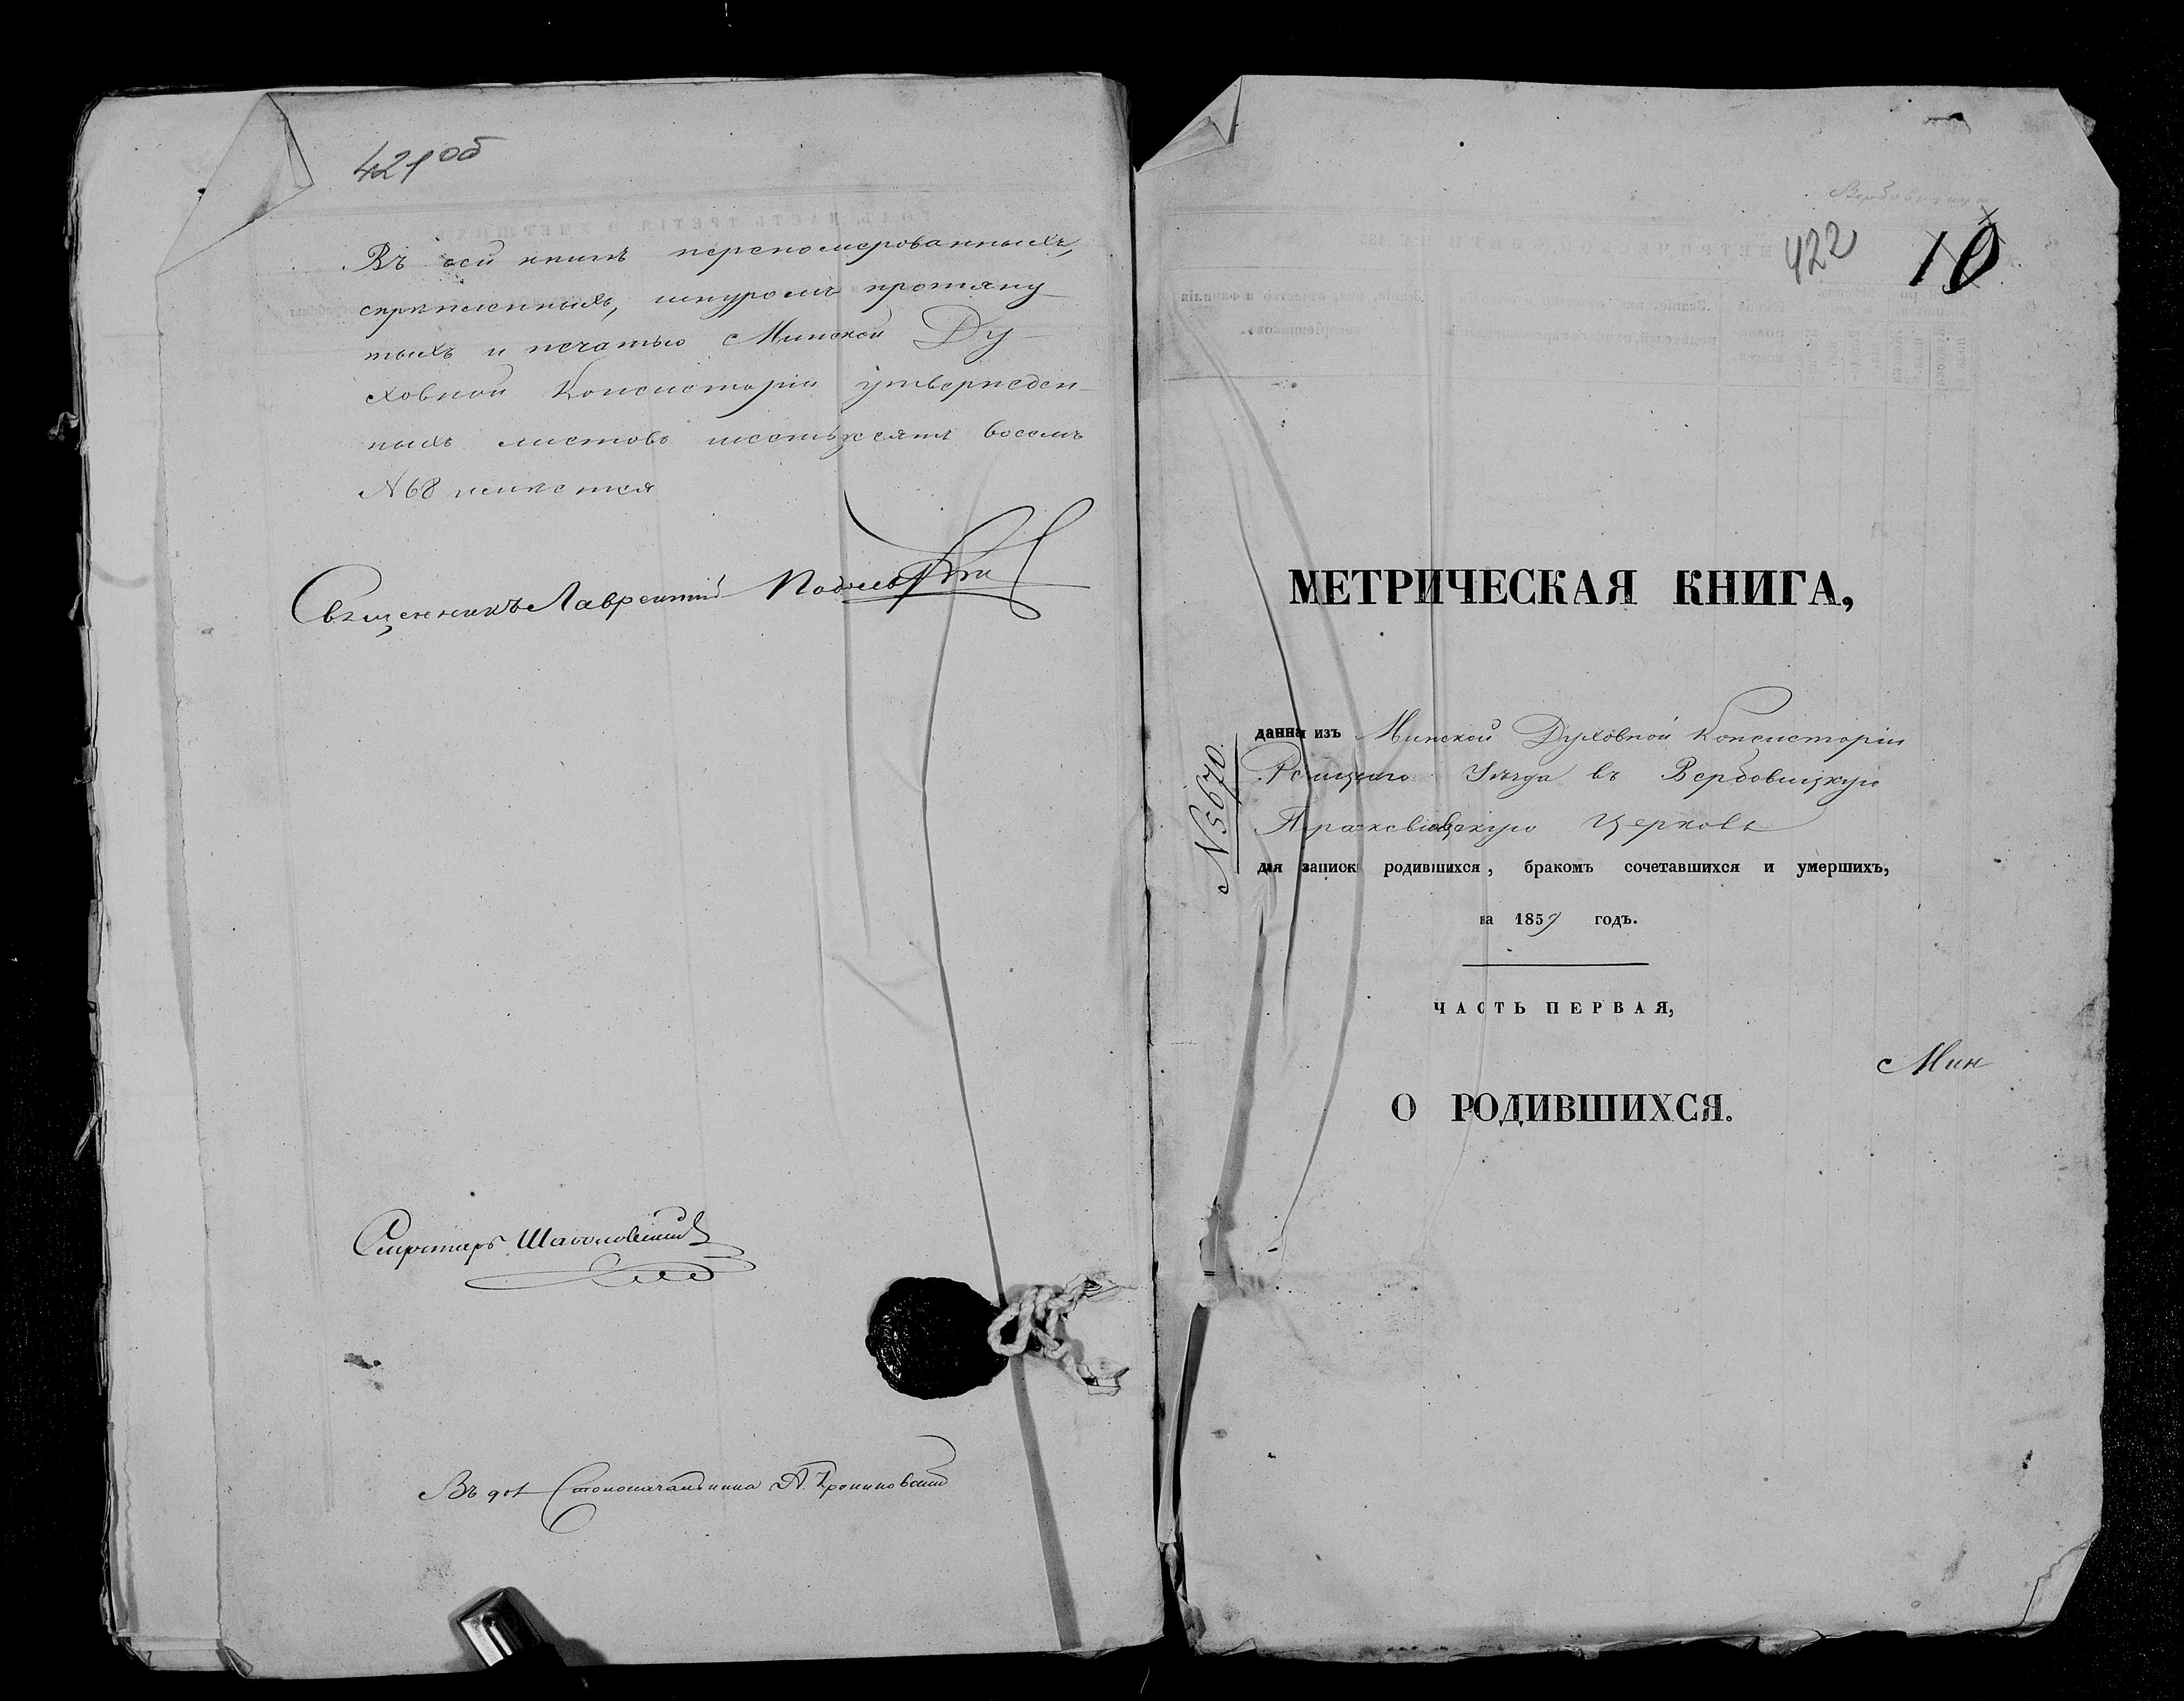 421об
Въ сей книгѣ перепомерованныхъ,
скрѣпленныхъ, шнуромъ протяну
тыхъ и печатью Минской Ду-
ховной Консисторіи утвержден-
ныхъ листовъ шестьдесятъ восемь
N 68 имѣется
Священникъ Лаврентій
Секретарь
Въ дол Столоначальника А.
Вербовицкую
422 10
МЕТРИЧЕСКАЯ КНИГА,
N 5670.
данна изъ Минской Духовной Консисторіи
Рѣчицкаго Уѣзда въ Вербовицкую
Праксвіевскую Церковь
для записк родившихся, бракомъ сочетавшихся и умершихъ,
на 1859 годъ.
ЧАСТЬ ПЕРВАЯ,
Мин
О РОДИВШИХСЯ.